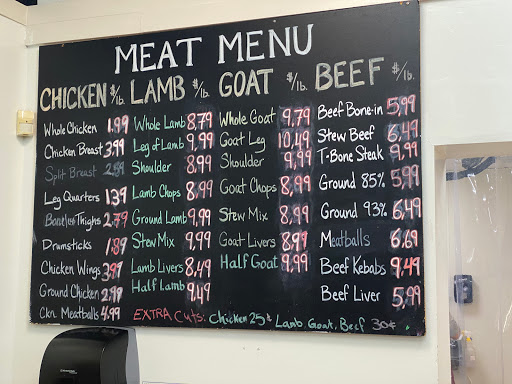 MEAT MENU
CHICKEN $/lb.
Whole Chicken 1.99
Chicken Breast 3.99
Split Breast 2.59
Leg Quarters 1.39
Boneless Thighs 2.79
Drumsticks 1.89
Chicken Wings 3.97
Ground Chicken 2.99
Ckn. Meatballs 4.99
LAMB $/lb.
Whole Lamb 8.79
Leg of Lamb 9.99
Shoulder 8.99
Lamb Chops 8.99
Ground Lamb 9.99
Stew Mix 9.99
Lamb Livers 8.49
Half Lamb 9.49
GOAT $/lb.
Whole Goat 9.79
Goat Leg 10.49
Shoulder 9.99
Goat Chops 8.99
Stew Mix 8.99
Goat Livers 8.99
Half Goat 9.99
BEEF $/lb.
Beef Bone-in 5.99
Stew Beef 6.49
T-Bone Steak 9.99
Ground 85% 5.99
Ground 93% 6.49
Meatballs 6.69
Beef Kebabs 9.49
Beef Liver 5.99
EXTRA Cuts: Chicken 25¢ Lamb, Goat, Beef 30¢